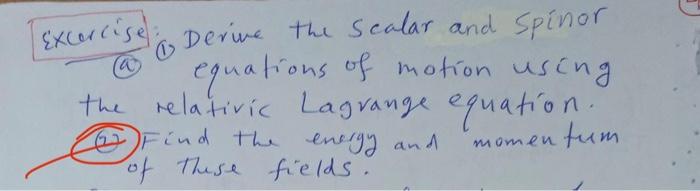 Excercise: (1) Derive the scalar and spinor
(a) equations of motion using
the relativic Lagrange equation.
(2) Find the energy and momentum
of these fields.